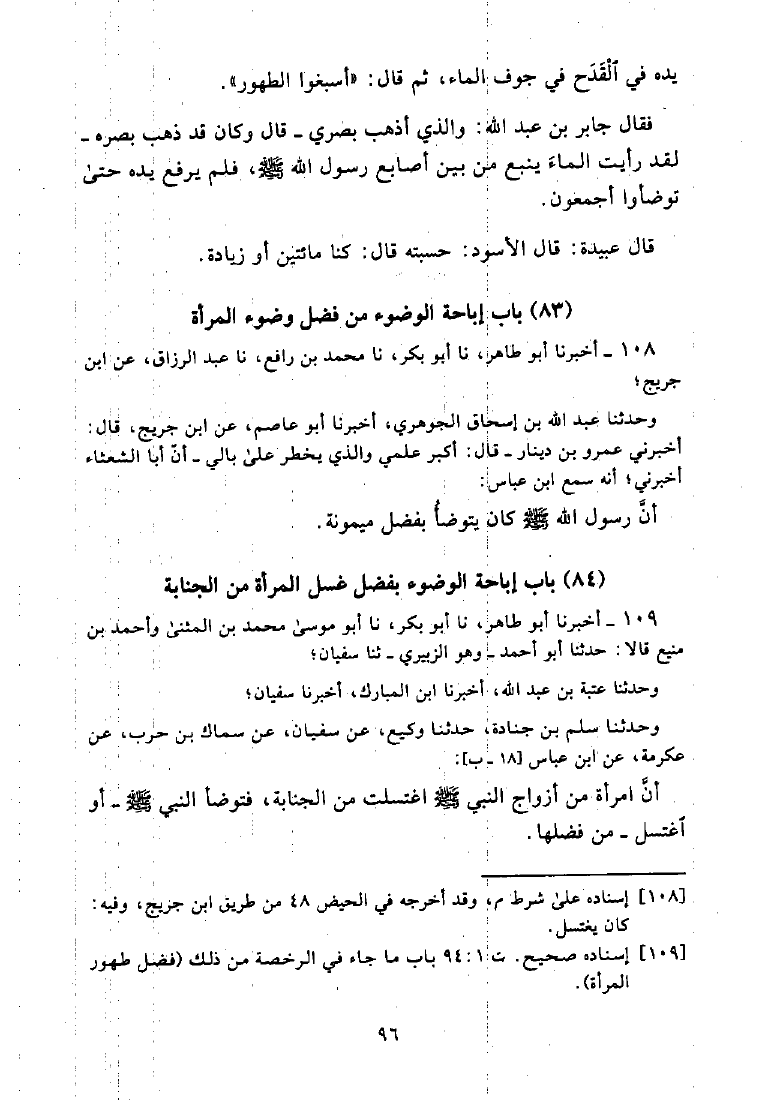 يده في ٱلْقَدَح في جوف الماء، ثم قال: «أسبغوا الطهور».
فقال جابر بن عبد الله: والذي أذهب بصري ـ قال وكان قد ذهب بصره ـ
لقد رأيت الماءَ ينبع من بين أصابع رسول الله ﷺ، فلم يرفع يده حتىٰ
توضأوا أجمعون.
قال عبيدة: قال الأسود: حسبته قال: كنا مائتين أو زيادة.
(٨٣) باب إباحة الوضوء من فضل وضوء المرأة
١٠٨ ـ أخبرنا أبو طاهر، نا أبو بكر، نا محمد بن رافع، نا عبد الرزاق، عن ابن
جريج؛
وحدثنا عبد الله بن إسحاق الجوهري، أخبرنا أبو عاصم، عن ابن جريج، قال:
أخبرني عمرو بن دينار ـ قال: أكبر علمي والذي يخطر علىٰ بالي ـ أنّ أبا الشعثاء
أخبرني؛ أنه سمع ابن عباس:
أنَّ رسول الله ﷺ كان يتوضأُ بفضل ميمونة.
(٨٤) باب إباحة الوضوء بفضل غسل المرأة من الجنابة
١٠٩ ـ أخبرنا أبو طاهر، نا أبو بكر، نا أبو موسىٰ محمد بن المثنىٰ وأحمد بن
منيع قالا: حدثنا أبو أحمد ـ وهو الزبيري ـ ثنا سفيان؛
وحدثنا عتبة بن عبد الله، أخبرنا ابن المبارك، أخبرنا سفيان؛
وحدثنا سلم بن جنادة، حدثنا وكيع، عن سفيان، عن سماك بن حرب، عن
عكرمة، عن ابن عباس [١٨ ـ ب]:
أنَّ امرأة من أزواج النبي ﷺ اغتسلت من الجنابة، فتوضأ النبي ﷺ ـ أو
ٱغتسل ـ من فضلها.
[١٠٨] إسناده علىٰ شرط م، وقد أخرجه في الحيض ٤٨ من طريق ابن جريج، وفيه:
كان يغتسل.
[١٠٩] إسناده صحيح. ت ١: ٩٤ باب ما جاء في الرخصة من ذلك (فضل طهور
المرأة).
٩٦